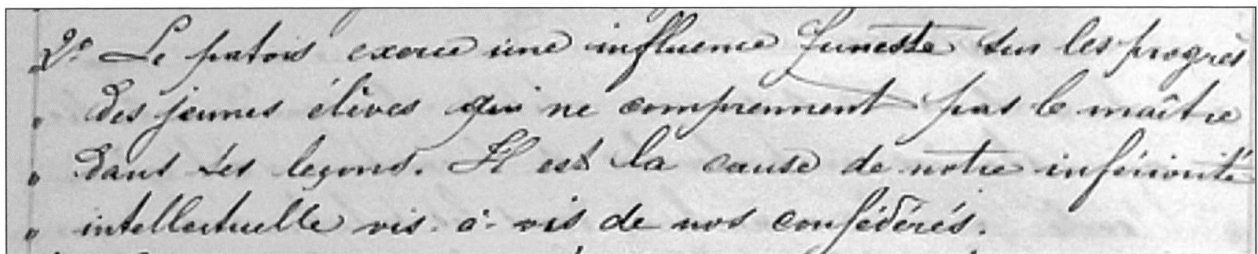 2° Le patois exerce une influence funeste sur les progrès
" des jeunes élèves qui ne comprennent pas le maître
" dans ses leçons. Il est la cause de notre infériorité
" intellectuelle vis-à-vis de nos confédérés.